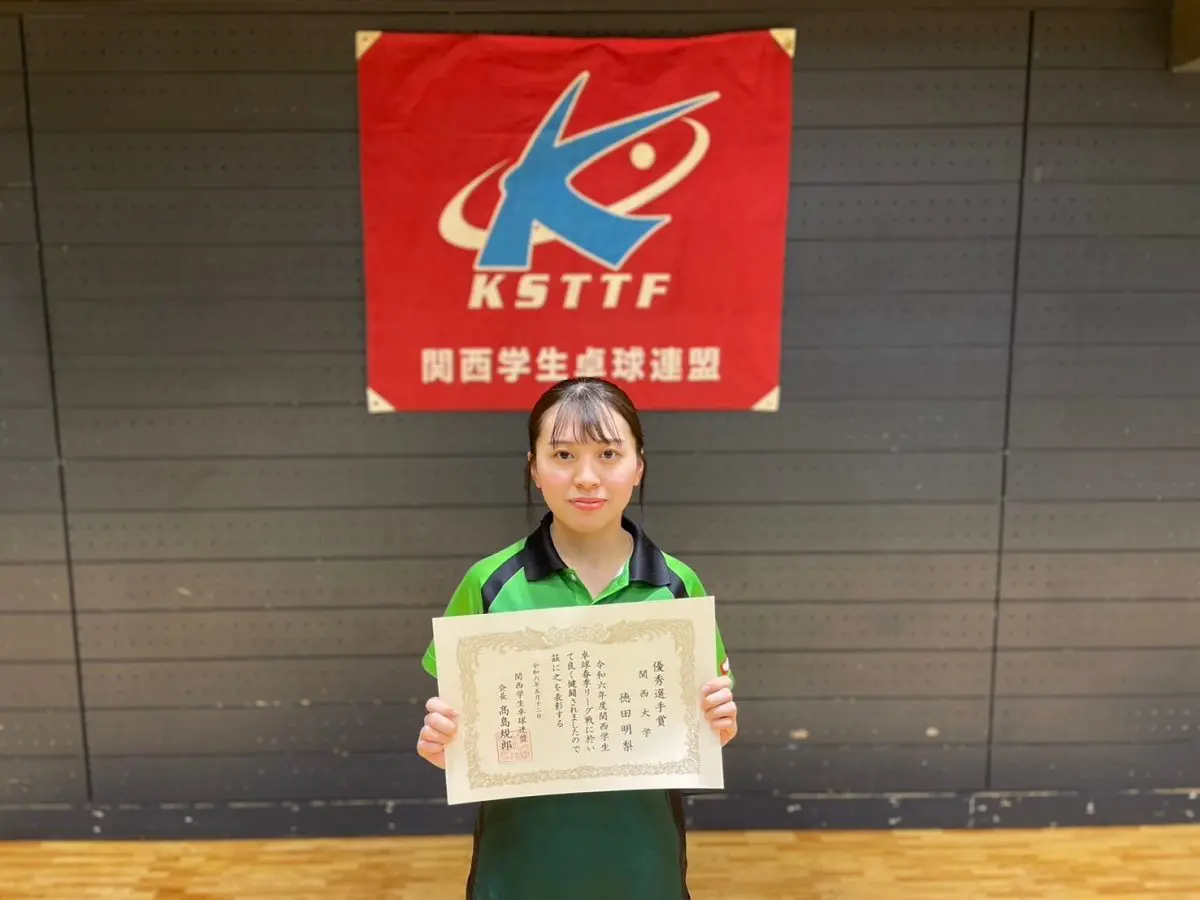 KSTTF
関西学生卓球連盟
優秀選手賞
関西大学
徳田明梨
令和六年度関西学生
卓球春季リーグ戦に於い
て良く健闘されましたので
茲に之を表彰する
令和六年五月十二日
関西学生卓球連盟
会長 髙島規郎